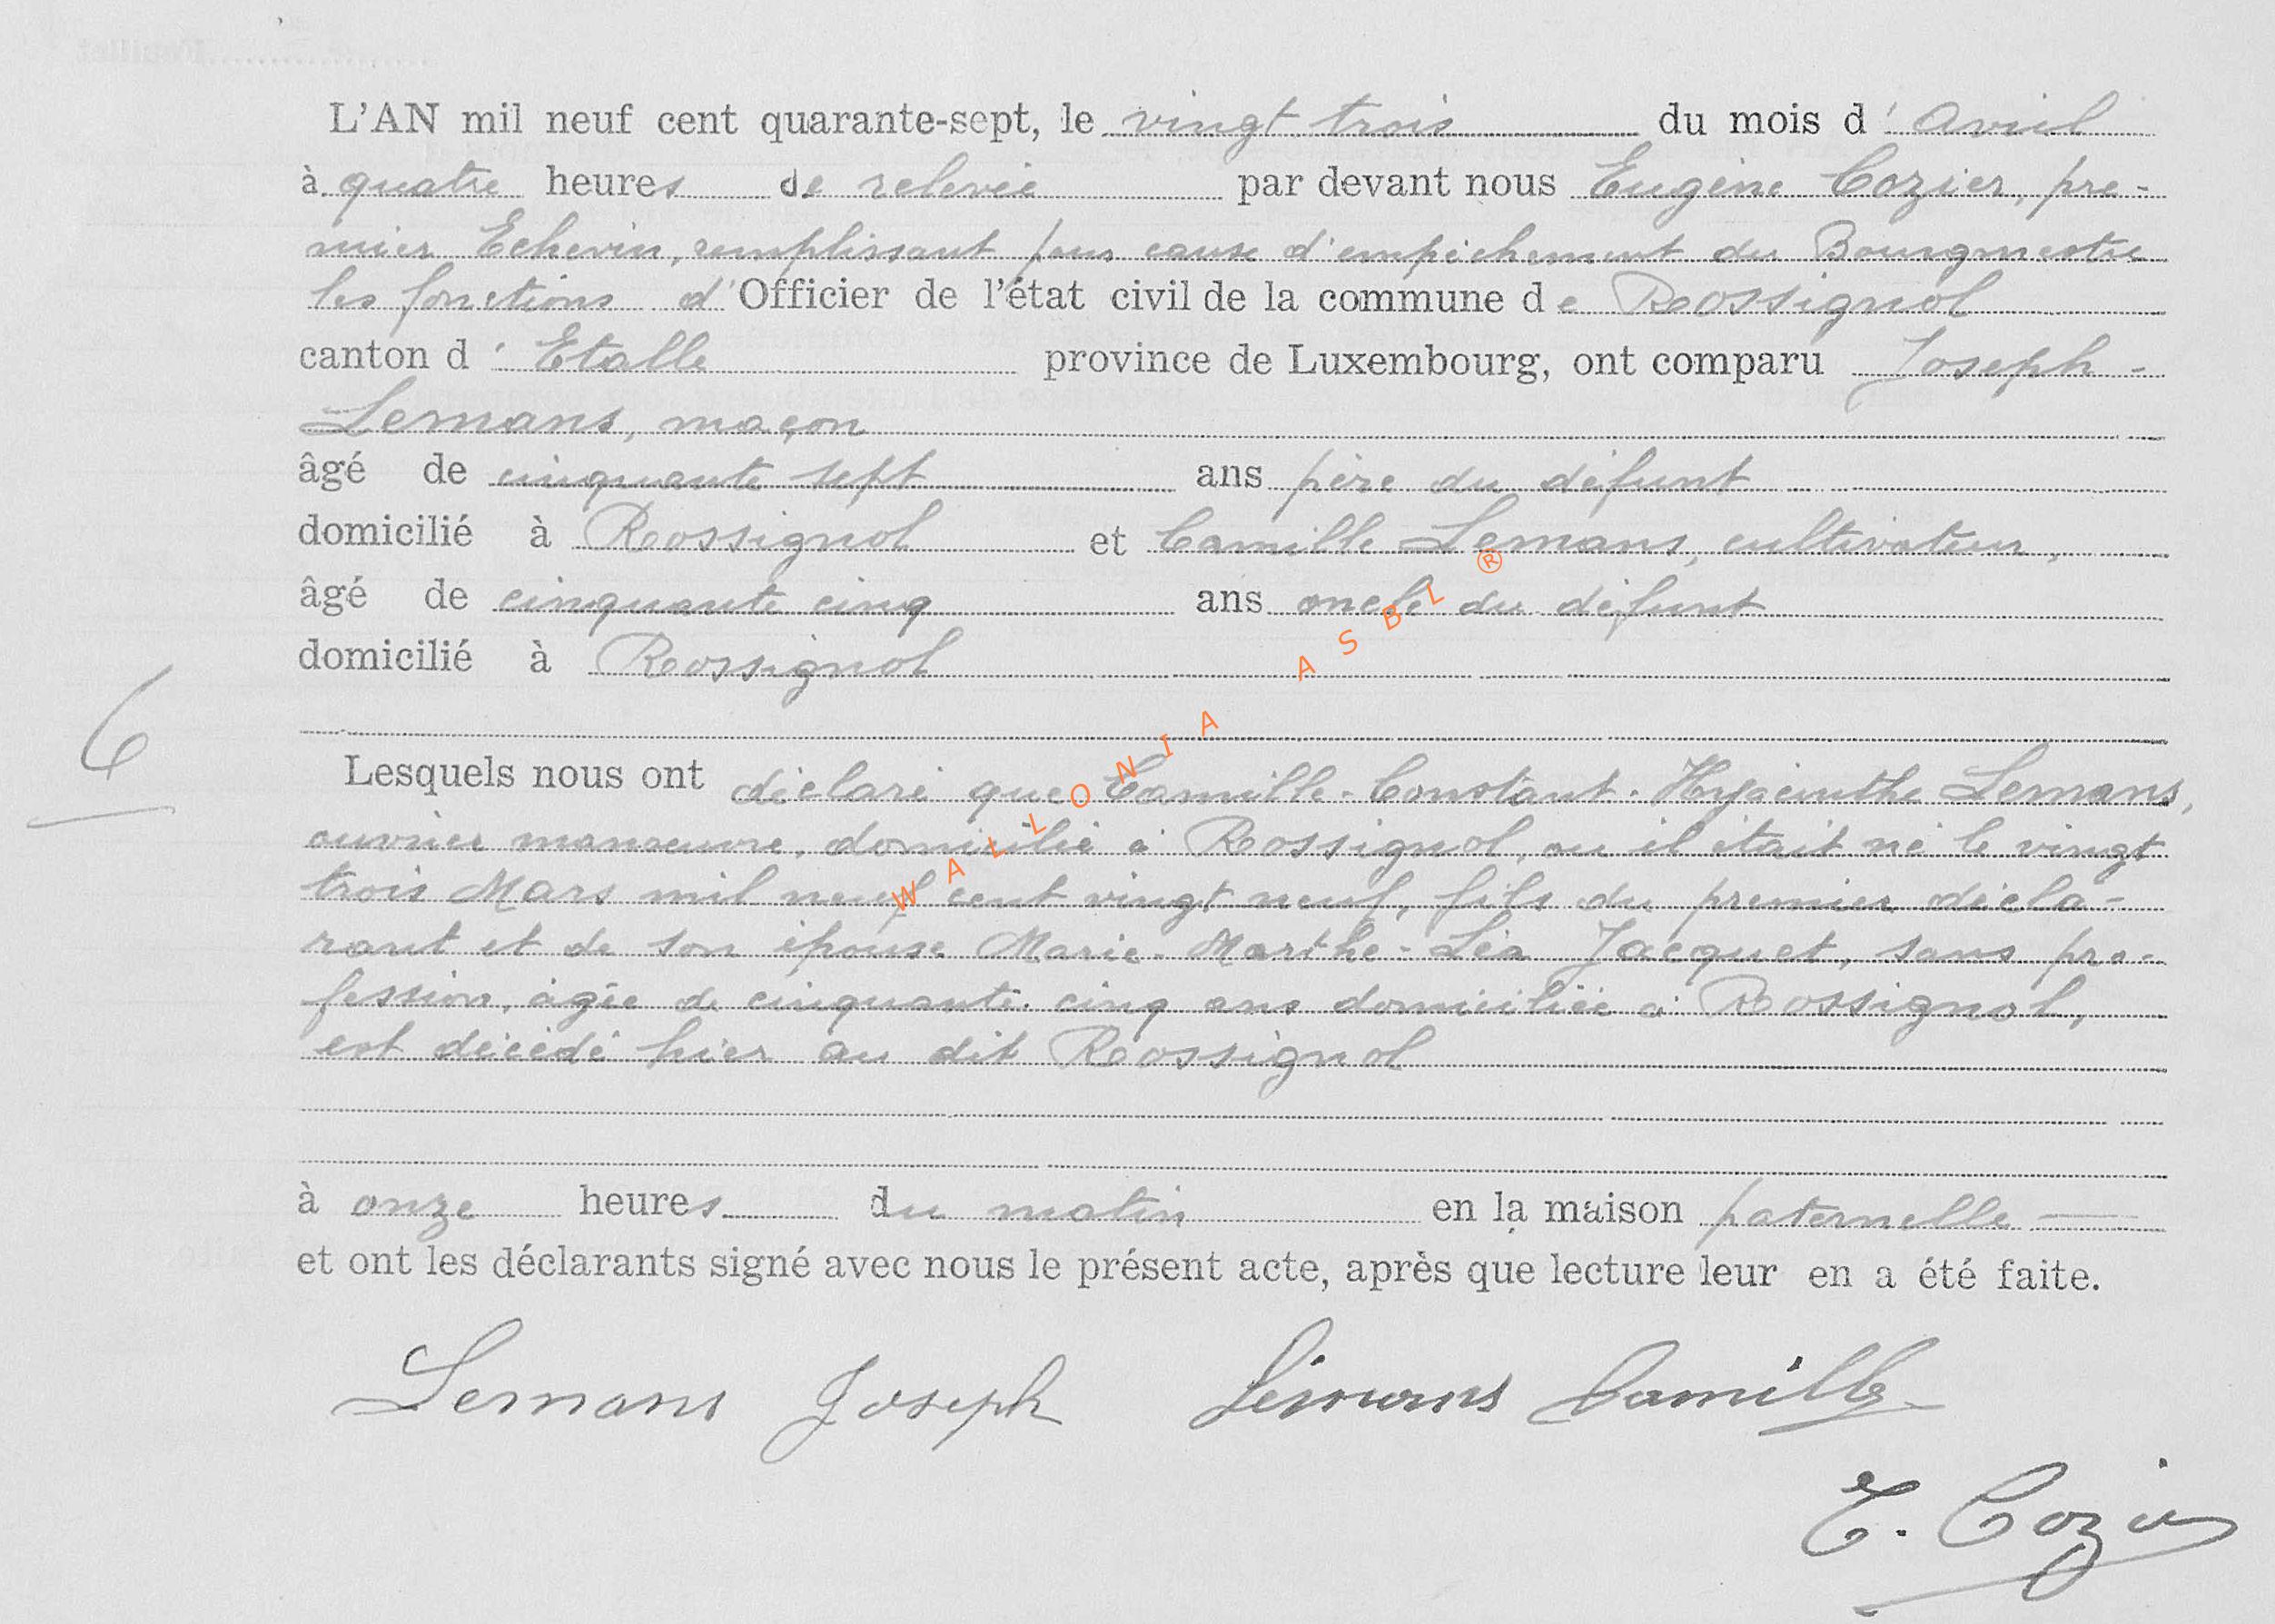 L'AN mil neuf cent quarante-sept, le vingt trois du mois d' Avril
à quatre heures de relevée par devant nous Eugène Cozier, pre-
mier Echevin, remplissant pour cause d'empêchement du Bourgmestre
les fonctions d'Officier de l'état civil de la commune de Rossignol
canton d' Etalle province de Luxembourg, ont comparu Joseph -
Lemans, maçon
âgé de cinquante sept ans père du défunt
domicilié à Rossignol et Camille Lemans, cultivateur,
âgé de cinquante cinq ans oncle du défunt
domicilié à Rossignol
6
Lesquels nous ont déclaré que Camille-Constant-Hyacinthe Lemans,
ouvrier manoeuvre, domicilié à Rossignol, ou il était né le vingt
trois Mars mil neuf cent vingt neuf, fils du premier décla-
rant et de son épouse Marie-Marthe-Léa Jacquet, sans pro-
fession, âgée de cinquante-cinq ans domiciliée à Rossignol,
est décédé hier au dit Rossignol
à onze heures du matin en la maison paternelle
et ont les déclarants signé avec nous le présent acte, après que lecture leur en a été faite.
Lemans Joseph Lemans Camille
E. Cozier
WALLONIA ASBL ®